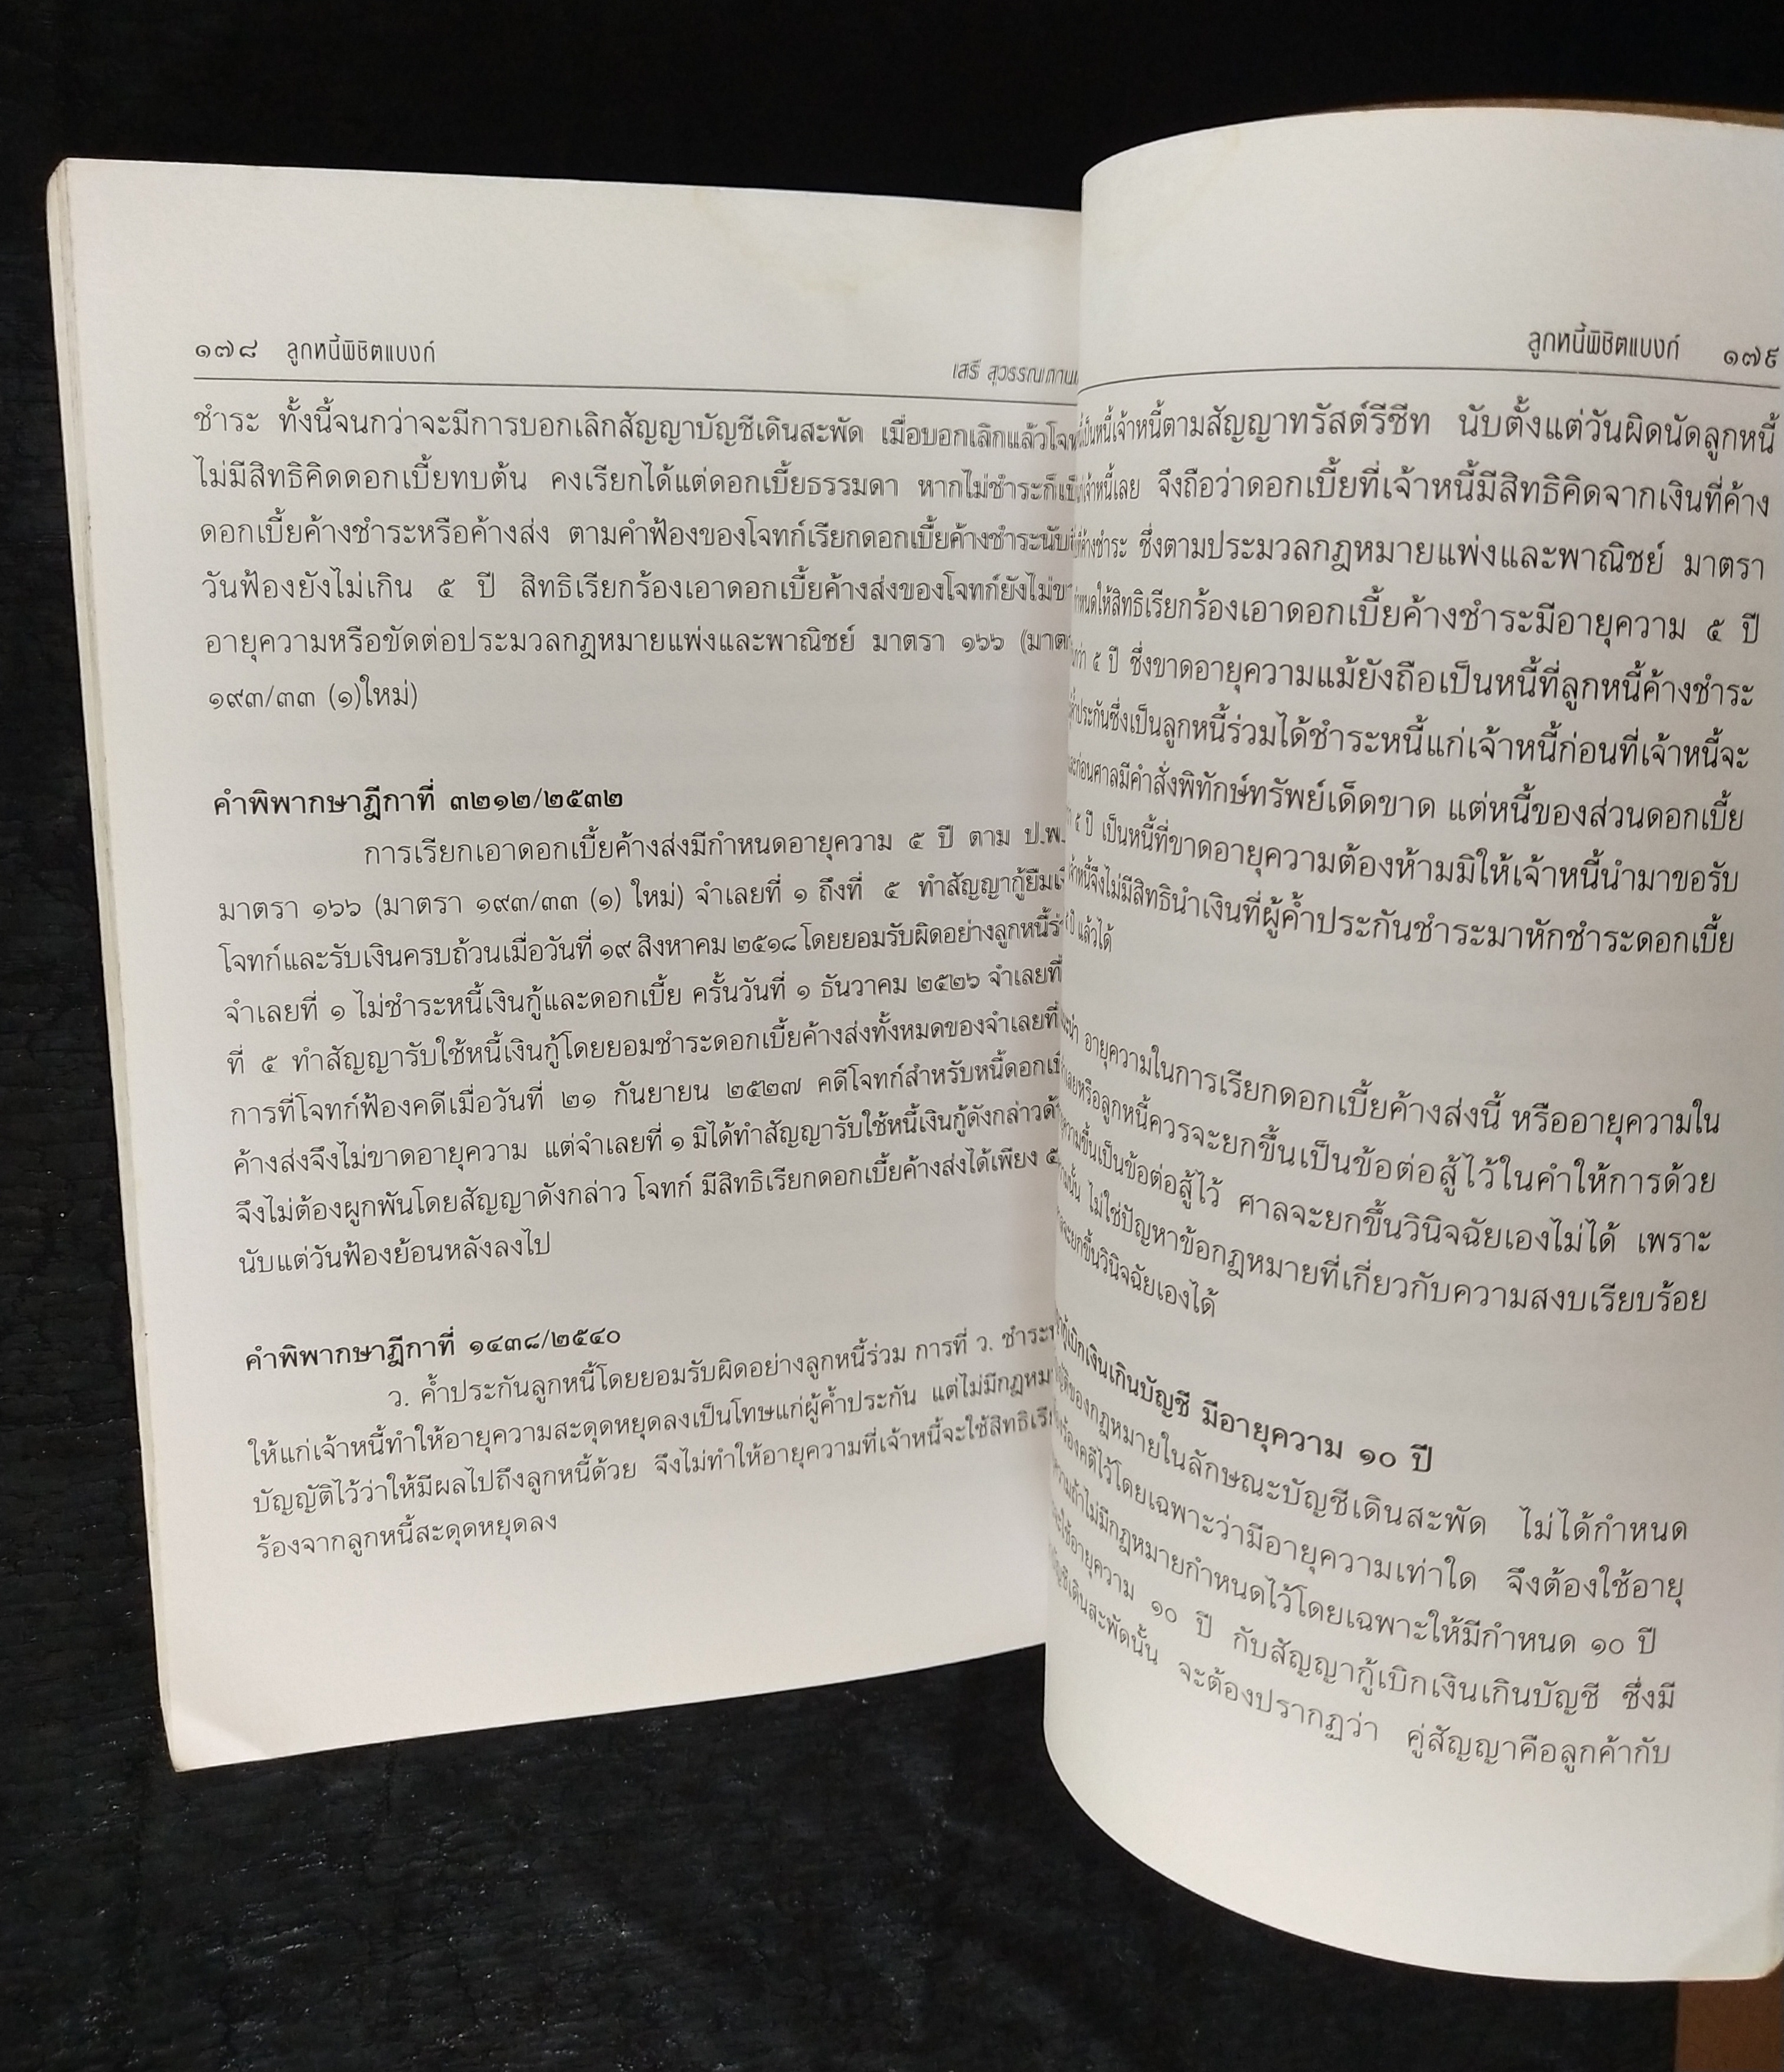 ๑๗๘ ลูกหนี้พิชิตแบงก์
เสรี
ชำระ ทั้งนี้จนกว่าจะมีการบอกเลิกสัญญาบัญชีเดินสะพัด เมื่อบอกเลิกแล้ว
ไม่มีสิทธิคิดดอกเบี้ยทบต้น คงเรียกได้แต่ดอกเบี้ยธรรมดา หากไม่ชำระ
ดอกเบี้ยค้างชำระหรือค้างส่ง ตามคำฟ้องของโจทก์เรียกดอกเบี้ยค้างชำระนับ
วันฟ้องยังไม่เกิน ๕ ปี สิทธิเรียกร้องเอาดอกเบี้ยค้างส่งของโจทก์ยังไม่
อายุความหรือขัดต่อประมวลกฎหมายแพ่งและพาณิชย์ มาตรา ๑๖๖
๑๙๓/๓๓ (๑)ใหม่)
คำพิพากษาฎีกาที่ ๓๒๑๒/๒๕๓๒
การเรียกเอาดอกเบี้ยค้างส่งมีกำหนดอายุความ ๕ ปี ตาม
มาตรา ๑๖๖ (มาตรา ๑๙๓/๓๓ (๑) ใหม่) จำเลยที่ ๑ ถึงที่ ๕
โจทก์และรับเงินครบถ้วนเมื่อวันที่ ๑๙ สิงหาคม ๒๕๑๘ โดยยอมรับผิดอย่างลูกหนี้
จำเลยที่ ๑ ไม่ชำระหนี้เงินกู้และดอกเบี้ย ครั้นวันที่ ๑ ธันวาคม ๒๕๒๖ จำเลยที่
ที่ ๕ ทำสัญญารับใช้หนี้เงินกู้โดยยอมชำระดอกเบี้ยค้างส่งทั้งหมดของจำเลยที่
การที่โจทก์ฟ้องคดีเมื่อวันที่ ๒๑ กันยายน ๒๕๒๗ คดีโจทก์สำหรับหนี้
ค้างส่งจึงไม่ขาดอายุความ แต่จำเลยที่ ๑ มิได้ทำสัญญารับใช้หนี้เงินกู้ดังกล่าว
จึงไม่ต้องผูกพันโดยสัญญาดังกล่าว โจทก์ มีสิทธิเรียกดอกเบี้ยค้างส่งได้เพียง
นับแต่วันฟ้องย้อนหลังลงไป
คำพิพากษาฎีกาที่ ๑๔๓๘/๒๕๔๐
ว. ค้ำประกันลูกหนี้โดยยอมรับผิดอย่างลูกหนี้ร่วม การที่ ว.
ให้แก่เจ้าหนี้ทำให้อายุความสะดุดหยุดลงเป็นโทษแก่ผู้ค้ำประกัน แต่ไม่มี
บัญญัติไว้ว่าให้มีผลไปถึงลูกหนี้ด้วย จึงไม่ทำให้อายุความที่เจ้าหนี้จะใช้สิทธิ
ร้องจากลูกหนี้สะดุดหยุดลง
ลูกหนี้พิชิตแบงก์ ๑๗๙
ตามสัญญาทรัสต์รีซีท นับตั้งแต่วันผิดนัดลูกหนี้
จึงถือว่าดอกเบี้ยที่เจ้าหนี้มีสิทธิคิดจากเงินที่ค้าง
ซึ่งตามประมวลกฎหมายแพ่งและพาณิชย์ มาตรา
ให้สิทธิเรียกร้องเอาดอกเบี้ยค้างชำระมีอายุความ ๕ ปี
๕ ปี ซึ่งขาดอายุความแม้ยังถือเป็นหนี้ที่ลูกหนี้ค้างชำระ
ซึ่งเป็นลูกหนี้ร่วมได้ชำระหนี้แก่เจ้าหนี้ก่อนที่เจ้าหนี้จะ
ศาลมีคำสั่งพิทักษ์ทรัพย์เด็ดขาด แต่หนี้ของส่วนดอกเบี้ย
๕ ปี เป็นหนี้ที่ขาดอายุความต้องห้ามมิให้เจ้าหนี้นำมาขอรับ
จึงไม่มีสิทธินำเงินที่ผู้ค้ำประกันชำระมาหักชำระดอกเบี้ย
แล้วได้
อายุความในการเรียกดอกเบี้ยค้างส่งนี้ หรืออายุความใน
หรือลูกหนี้ควรจะยกขึ้นเป็นข้อต่อสู้ไว้ในคำให้การด้วย
ขึ้นเป็นข้อต่อสู้ไว้ ศาลจะยกขึ้นวินิจฉัยเองไม่ได้ เพราะ
ไม่ใช่ปัญหาข้อกฎหมายที่เกี่ยวกับความสงบเรียบร้อย
จะยกขึ้นวินิจฉัยเองได้
เบิกเงินเกินบัญชี มีอายุความ ๑๐ ปี
ของกฎหมายในลักษณะบัญชีเดินสะพัด ไม่ได้กำหนด
คดีไว้โดยเฉพาะว่ามีอายุความเท่าใด จึงต้องใช้อายุ
ถ้าไม่มีกฎหมายกำหนดไว้โดยเฉพาะให้มีกำหนด ๑๐ ปี
ใช้อายุความ ๑๐ ปี กับสัญญากู้เบิกเงินเกินบัญชี ซึ่งมี
เดินสะพัดนั้น จะต้องปรากฏว่า คู่สัญญาคือลูกค้ากับ